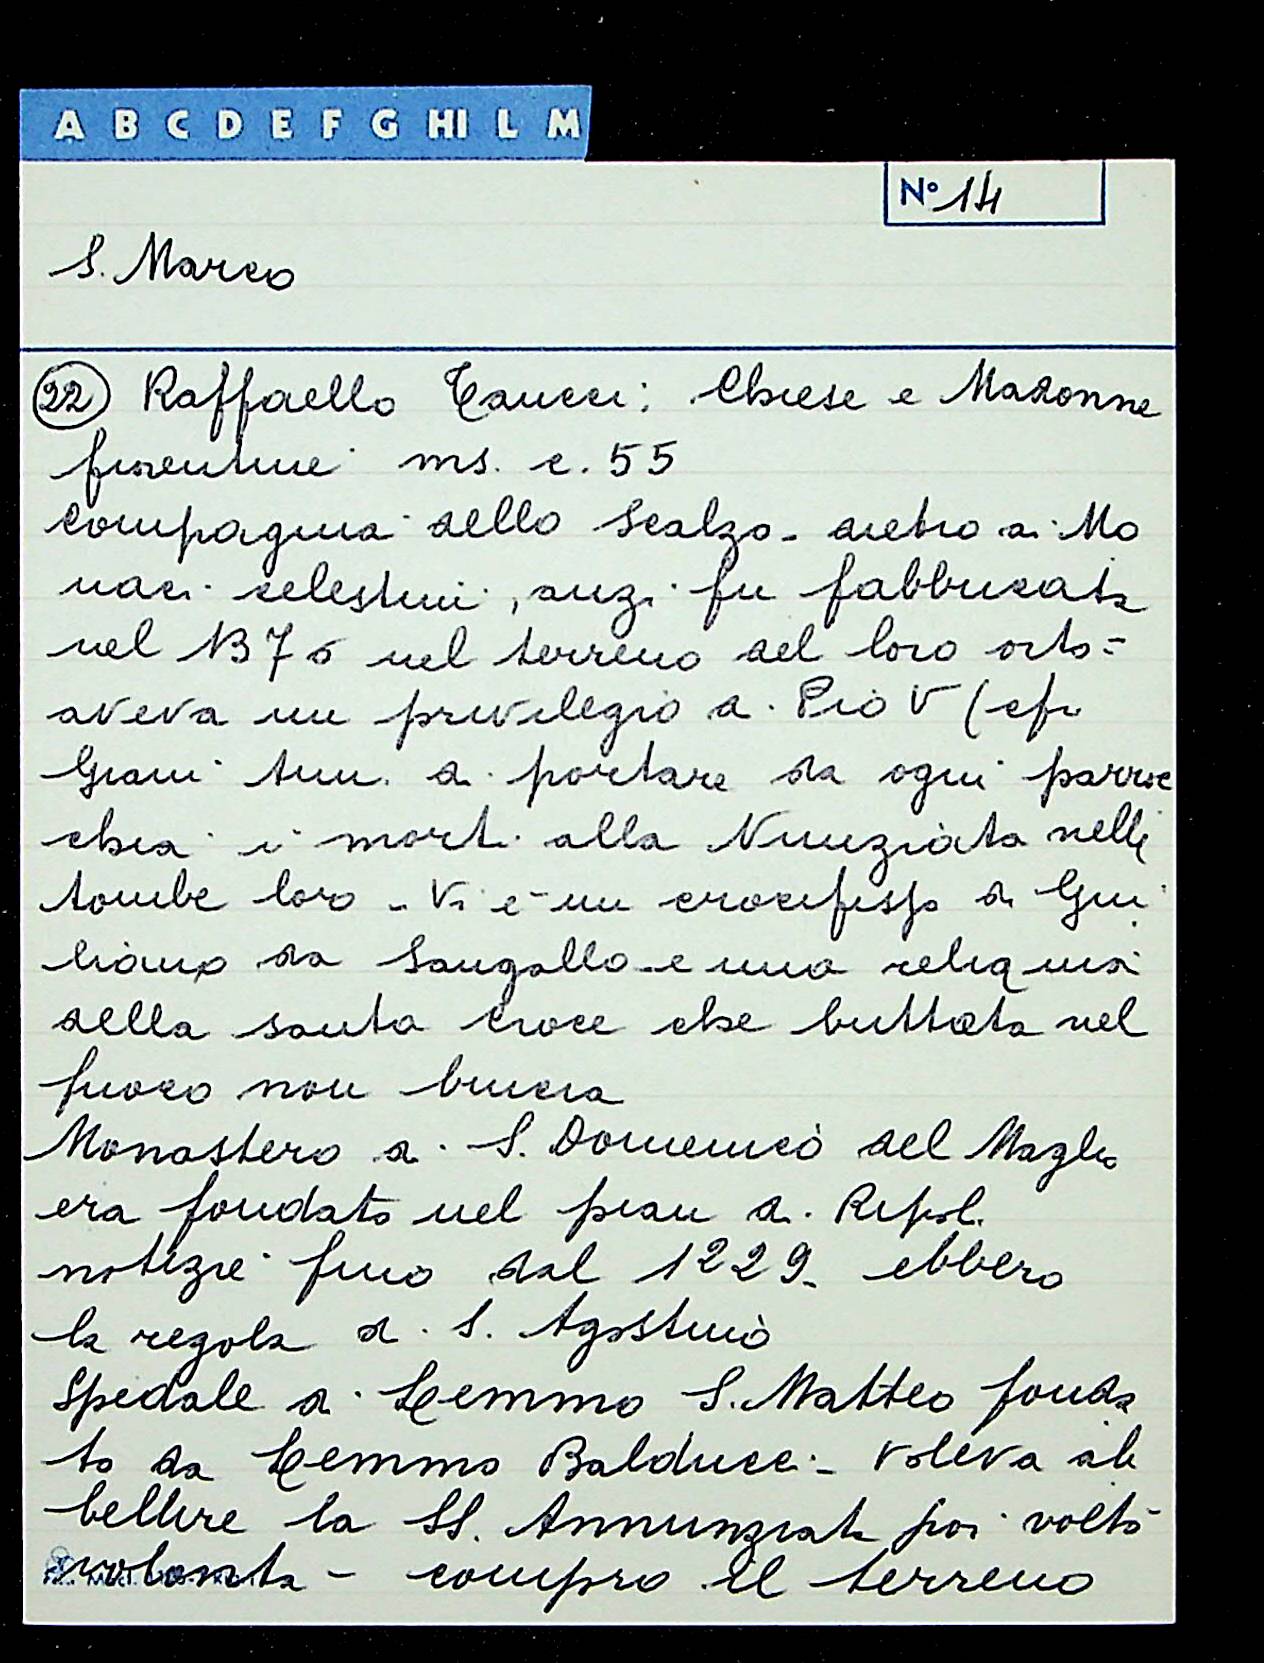 A B C D E F G HI L M
N° 14
S. Marco
22 Raffaello Taucci: Chiese e Madonne
fiorentine ms. c. 55
Compagnia dello Scalzo - dietro ai Mo
naci celestini, anzi fu fabbricata
nel 1376 nel terreno del loro orto =
aveva un privilegio di Pio V (cfr
Giani Ann. di portare da ogni parroc
chia i morti alla Nunziata nelle
tombe loro - Vi è un crocifisso di Giu
liano da Sangallo - e una reliquia
della santa Croce che buttata nel
fuoco non brucia
Monastero di S. Domenico del Maglio
era fondato nel pian di Ripol.
notizie fino dal 1229 - ebbero
la regola di S. Agostino
Spedale di Lemmo S. Matteo fonda
to da Lemmo Balducci - Voleva ab
bellire la SS. Annunziata poi voltò
volontà - comprò il terreno